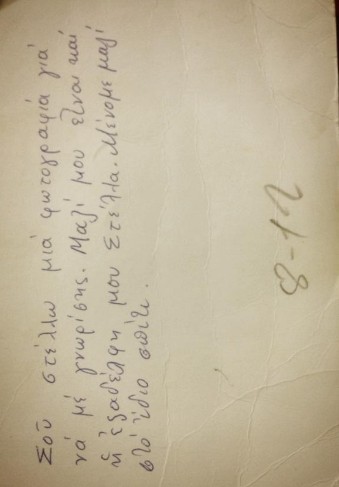 Σοῦ στέλλω μιά φωτογραφία γιά
νά μέ γνωρίσης. Μαζί μου εἶναι καί
ἡ ἐξαδέλφη μου Στέλλα. Μένομε μαζί
στό ἴδιο σπίτι.
8-12